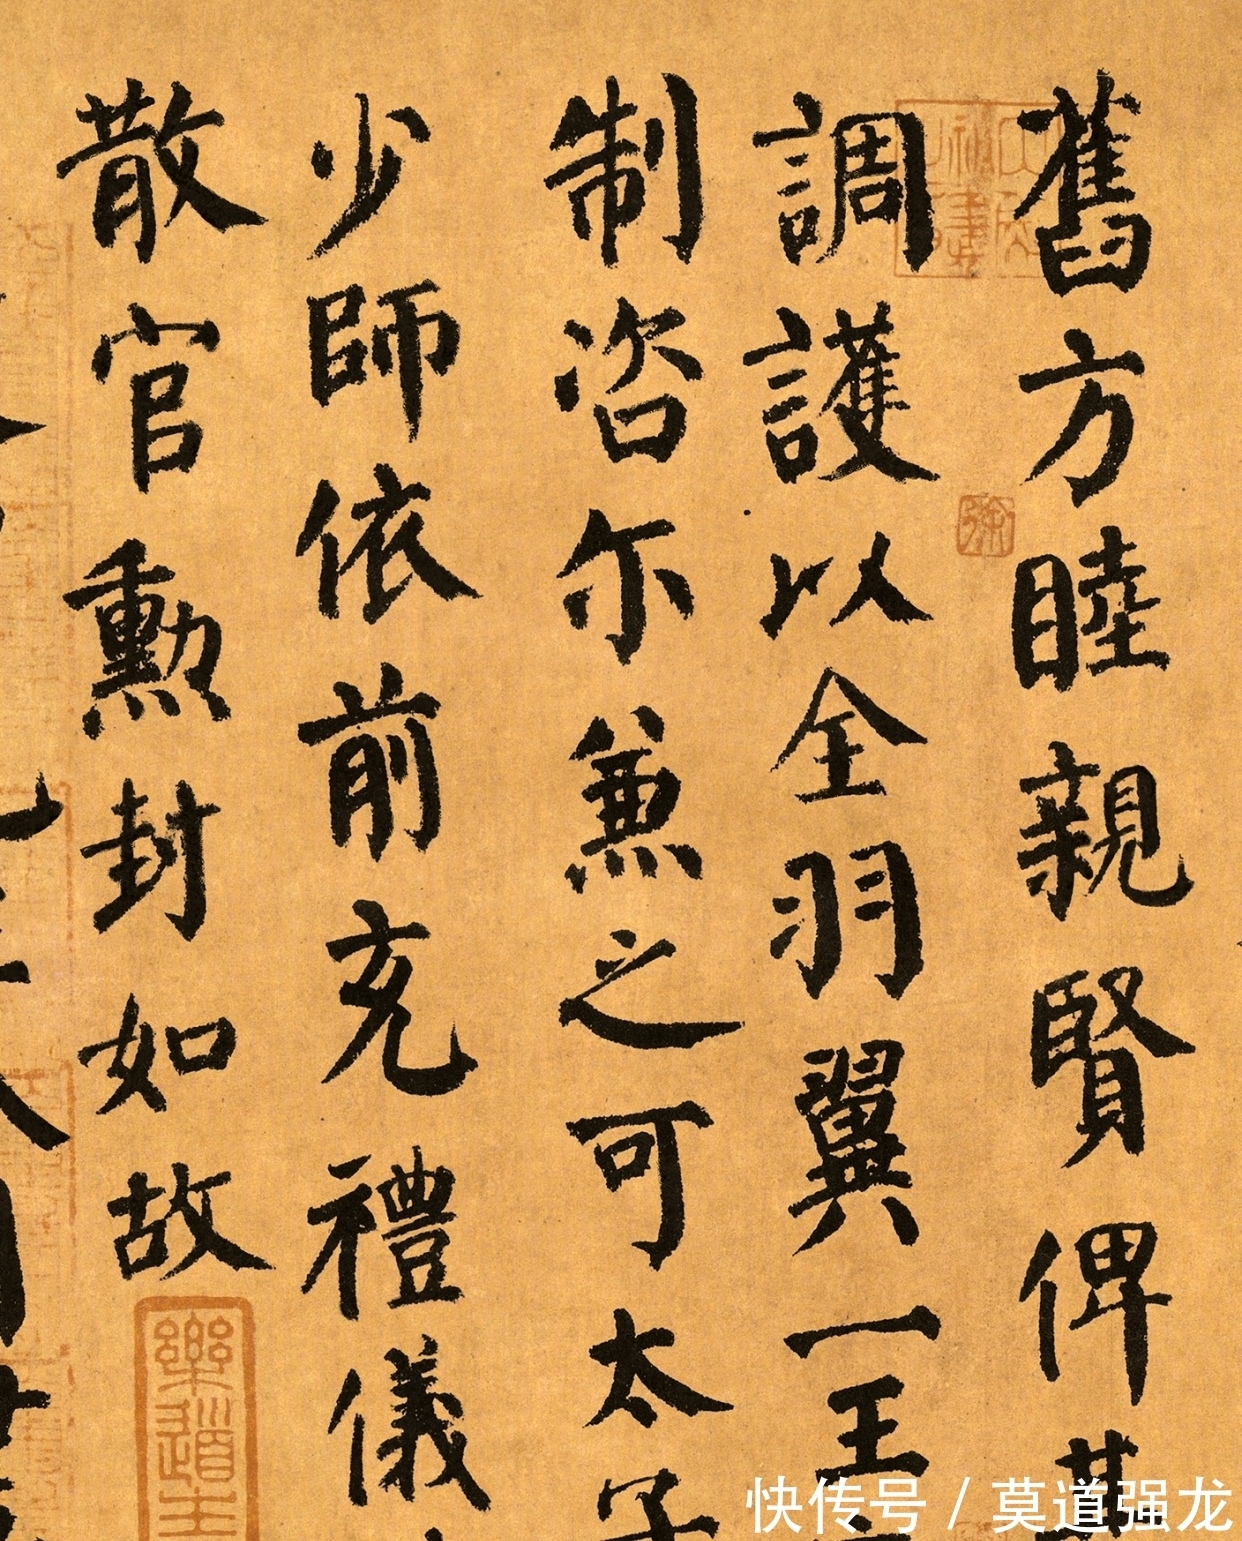 舊方睦親賢俾其
調護以全羽翼一王
制咨尔兼之可太子
少師依前充禮儀
散官勳封如故
快传号 / 莫道强龙